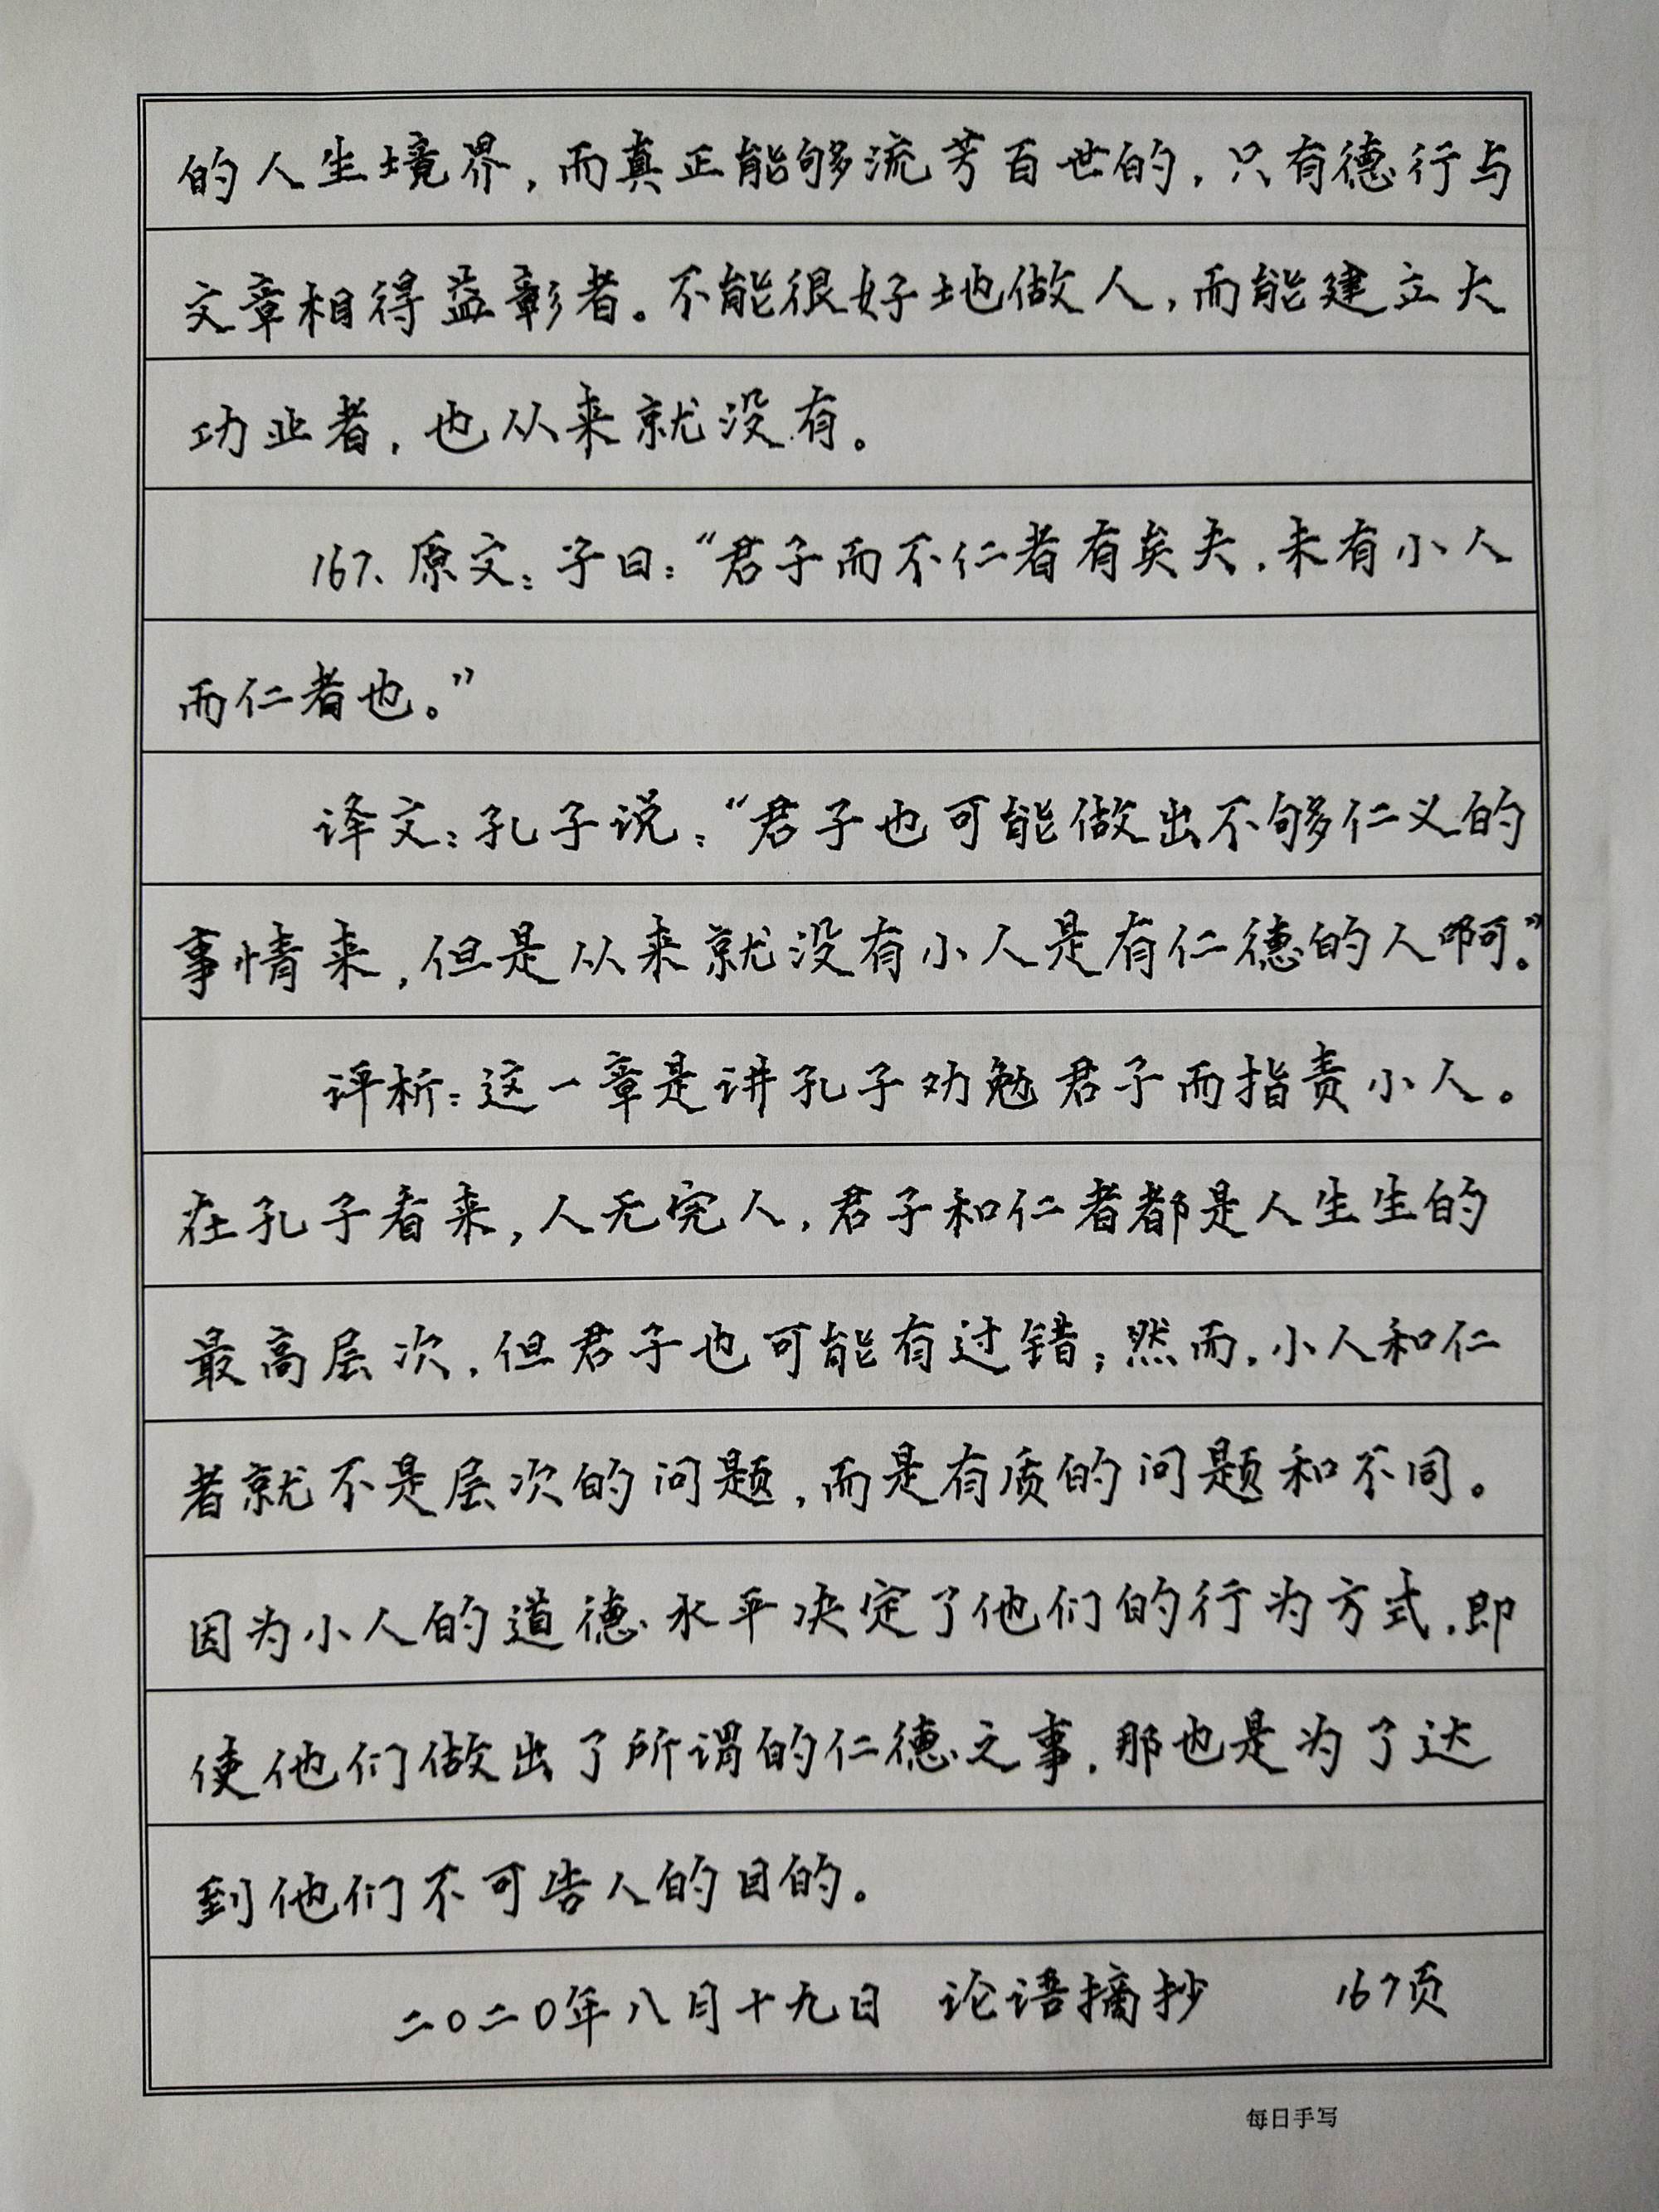 的人生境界,而真正能够流芳百世的,只有德行与
文章相得益彰者。不能很好地做人,而能建立大
功业者,也从来就没有。
167、原文:子曰:“君子而不仁者有矣夫,未有小人
而仁者也。”
译文:孔子说:“君子也可能做出不够仁义的
事情来,但是从来就没有小人是有仁德的人啊。”
评析:这一章是讲孔子劝勉君子而指责小人。
在孔子看来,人无完人,君子和仁者都是人生生的
最高层次,但君子也可能有过错;然而,小人和仁
者就不是层次的问题,而是有质的问题和不同。
因为小人的道德水平决定了他们的行为方式,即
使他们做出了所谓的仁德之事,那也是为了达
到他们不可告人的目的。
二〇二〇年八月十九日 论语摘抄 167页
每日手写